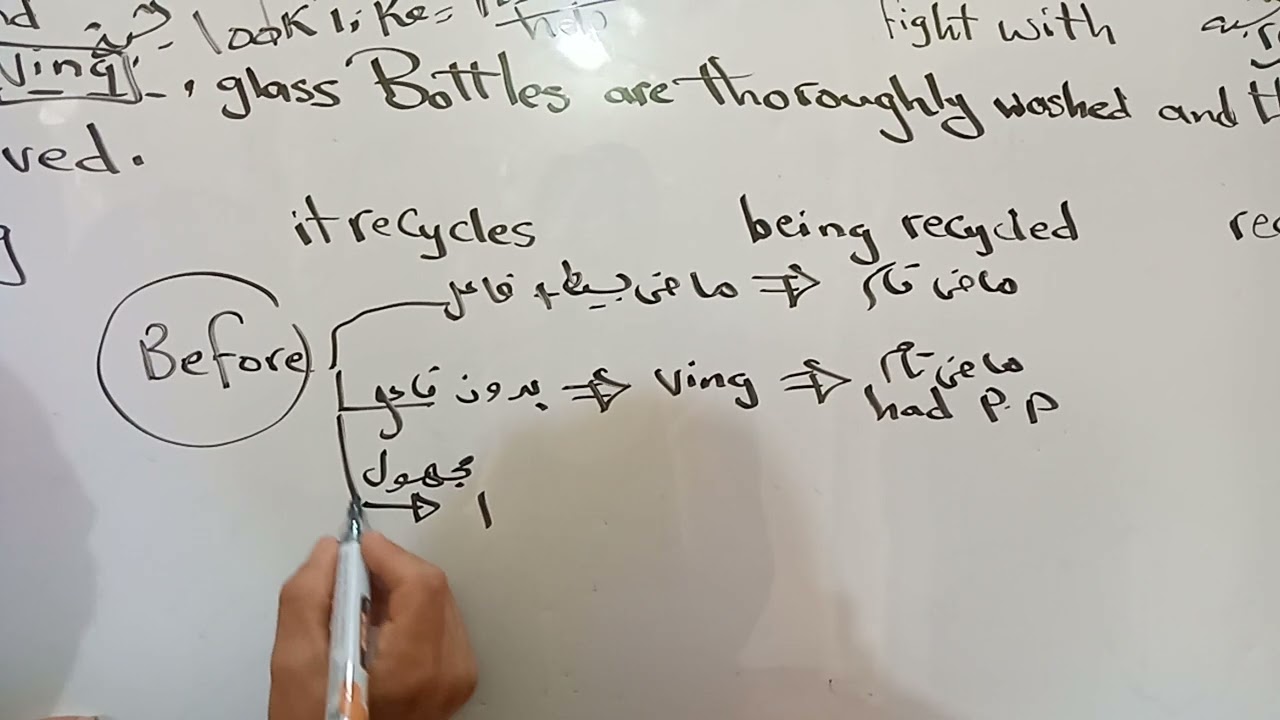 look like= help fight with
Ving , glass Bottles are thoroughly washed and
ved.
it recycles being recycled
فاعل + ماضى بسيط ⇒ ماضى تام
Before
بدون فاعل ⇒ Ving ⇒ ماضى تام
had P.P
مجهول